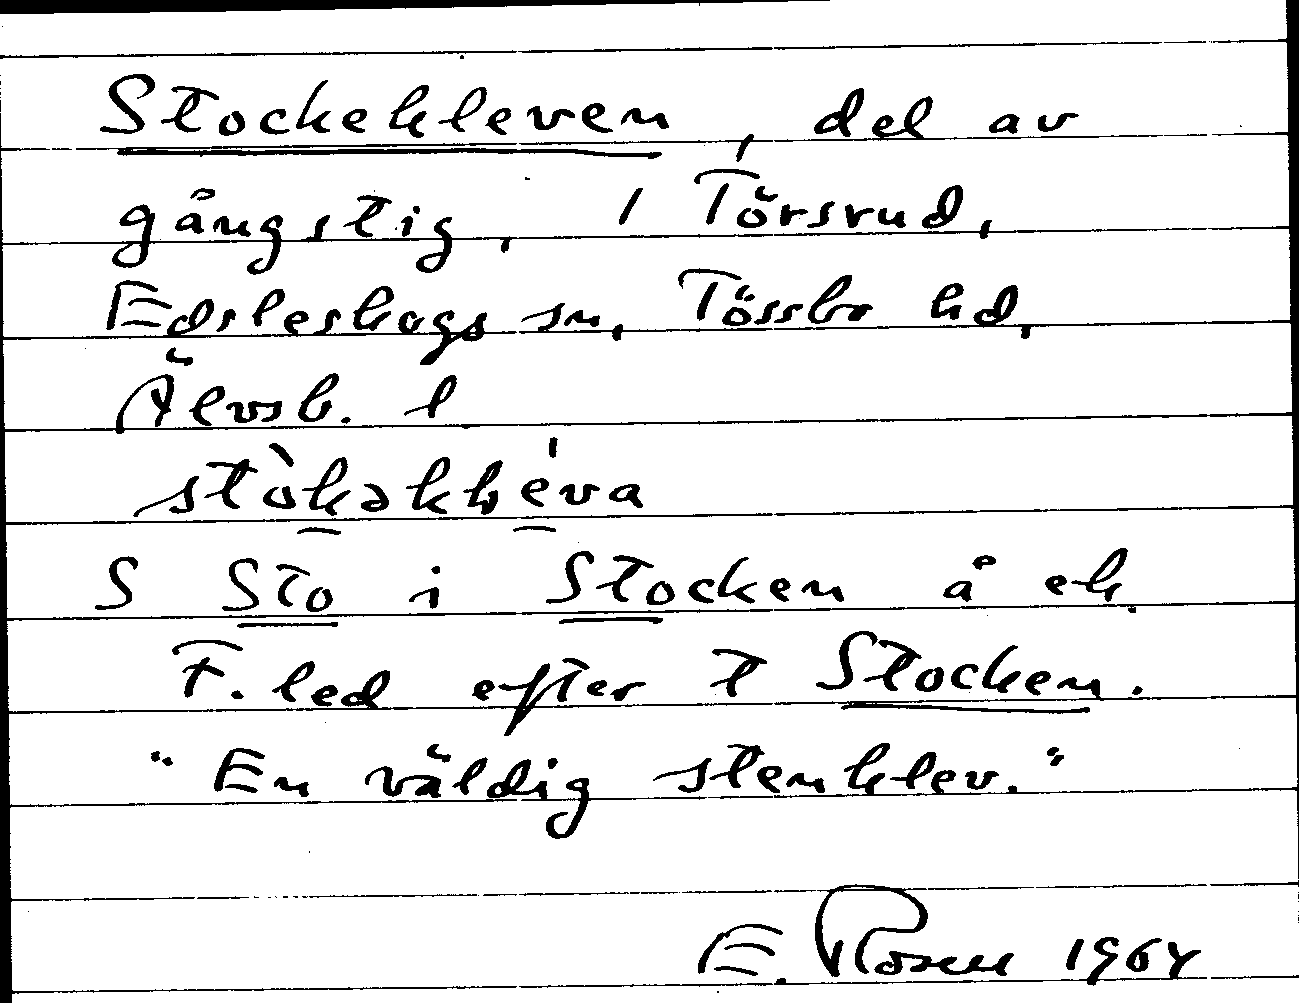 Stockekleven, del av
gångstig, i Törsrud,
Edsleskogs sn, Tössbo hd,
Älvsb. l
stò̲kəkle̲va
S Sto i Stocken å ek.
F. led efter t Stocken.
"En väldig stenklev."
E. Rosell 1964